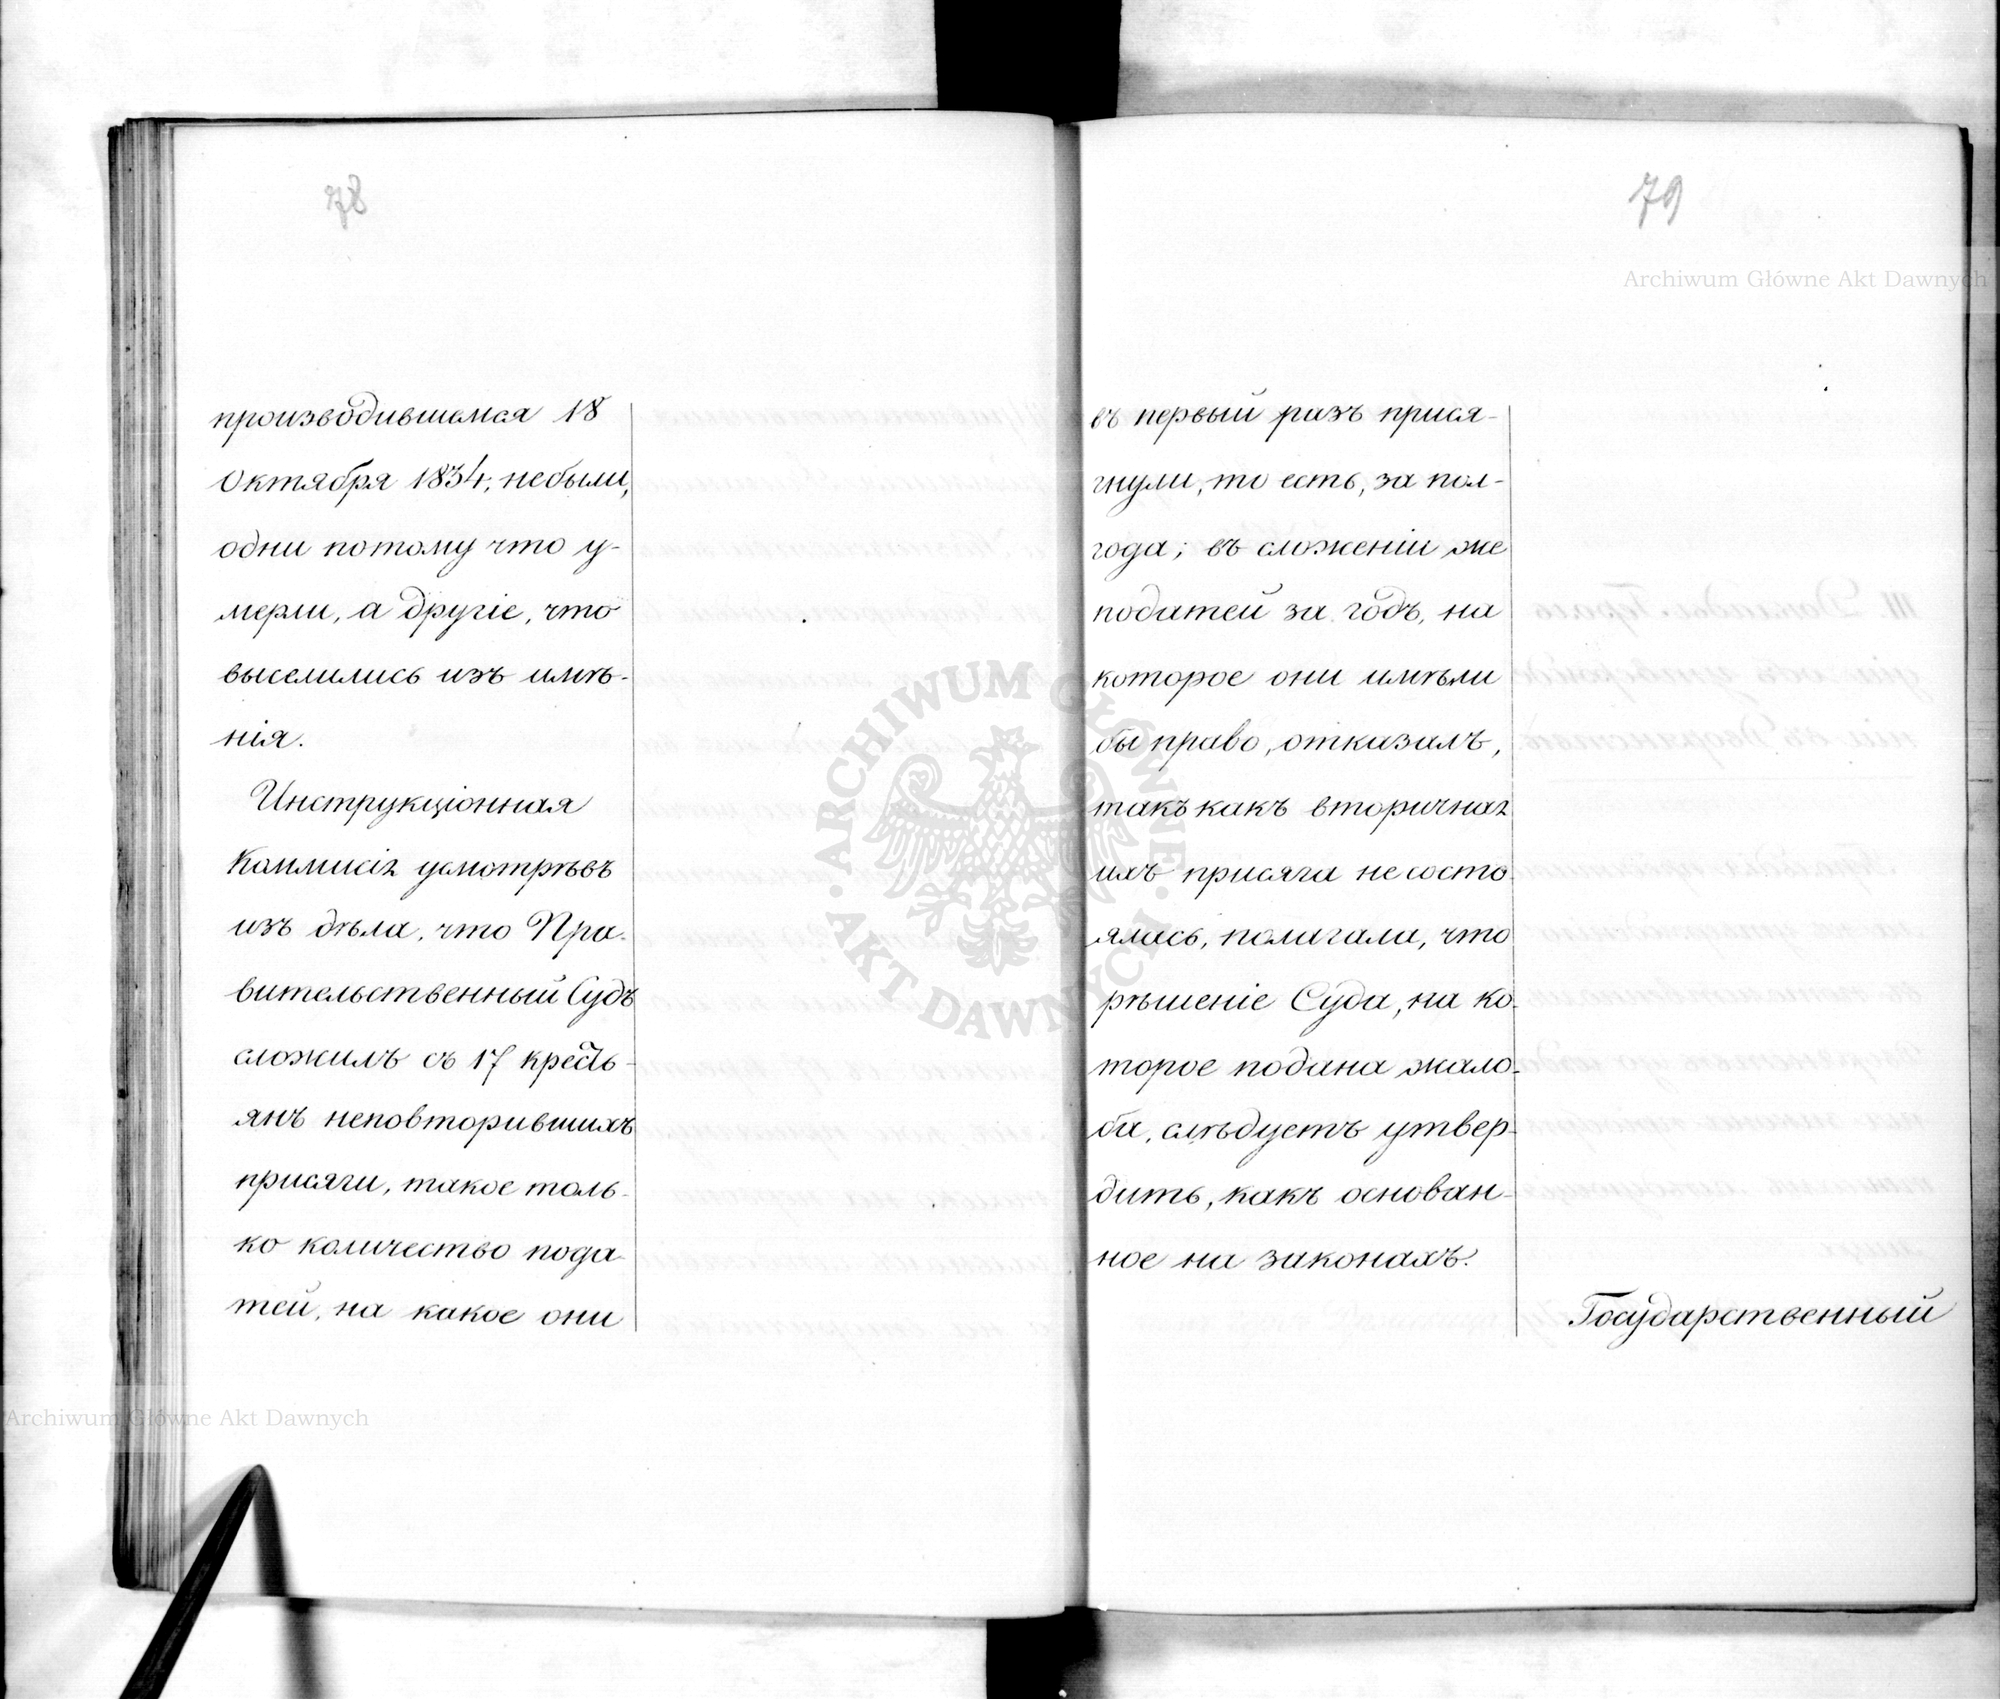 78
производившемся 18
Октября 1834, небыли,
одни потому что у-
мерли, а другіе, что
выселились изъ имѣ-
нія.
Инструкціонная
Коммисія усмотрѣвъ
изъ дѣла, что Пра-
вительственный Судъ
сложилъ съ 17 кресть-
янъ неповторившихъ
присяги, такое толь-
ко количество пода-
тей, на какое они
79
въ первый разъ прися-
гнули, то есть, за пол-
года; въ сложеніи же
податей за годъ, на
которое они имѣли
бы право, отказалъ,
такъ какъ вторичная
ихъ присяга не состо-
ялась, полагали, что
рѣшеніе Суда, на ко-
торое подана жало-
ба, слѣдуетъ утвер-
дить, какъ основан-
ное на законахъ.
Государственный
Archiwum Główne Akt Dawnych
ARCHIWUM GŁÓWNE AKT DAWNYCH
Archiwum Główne Akt Dawnych